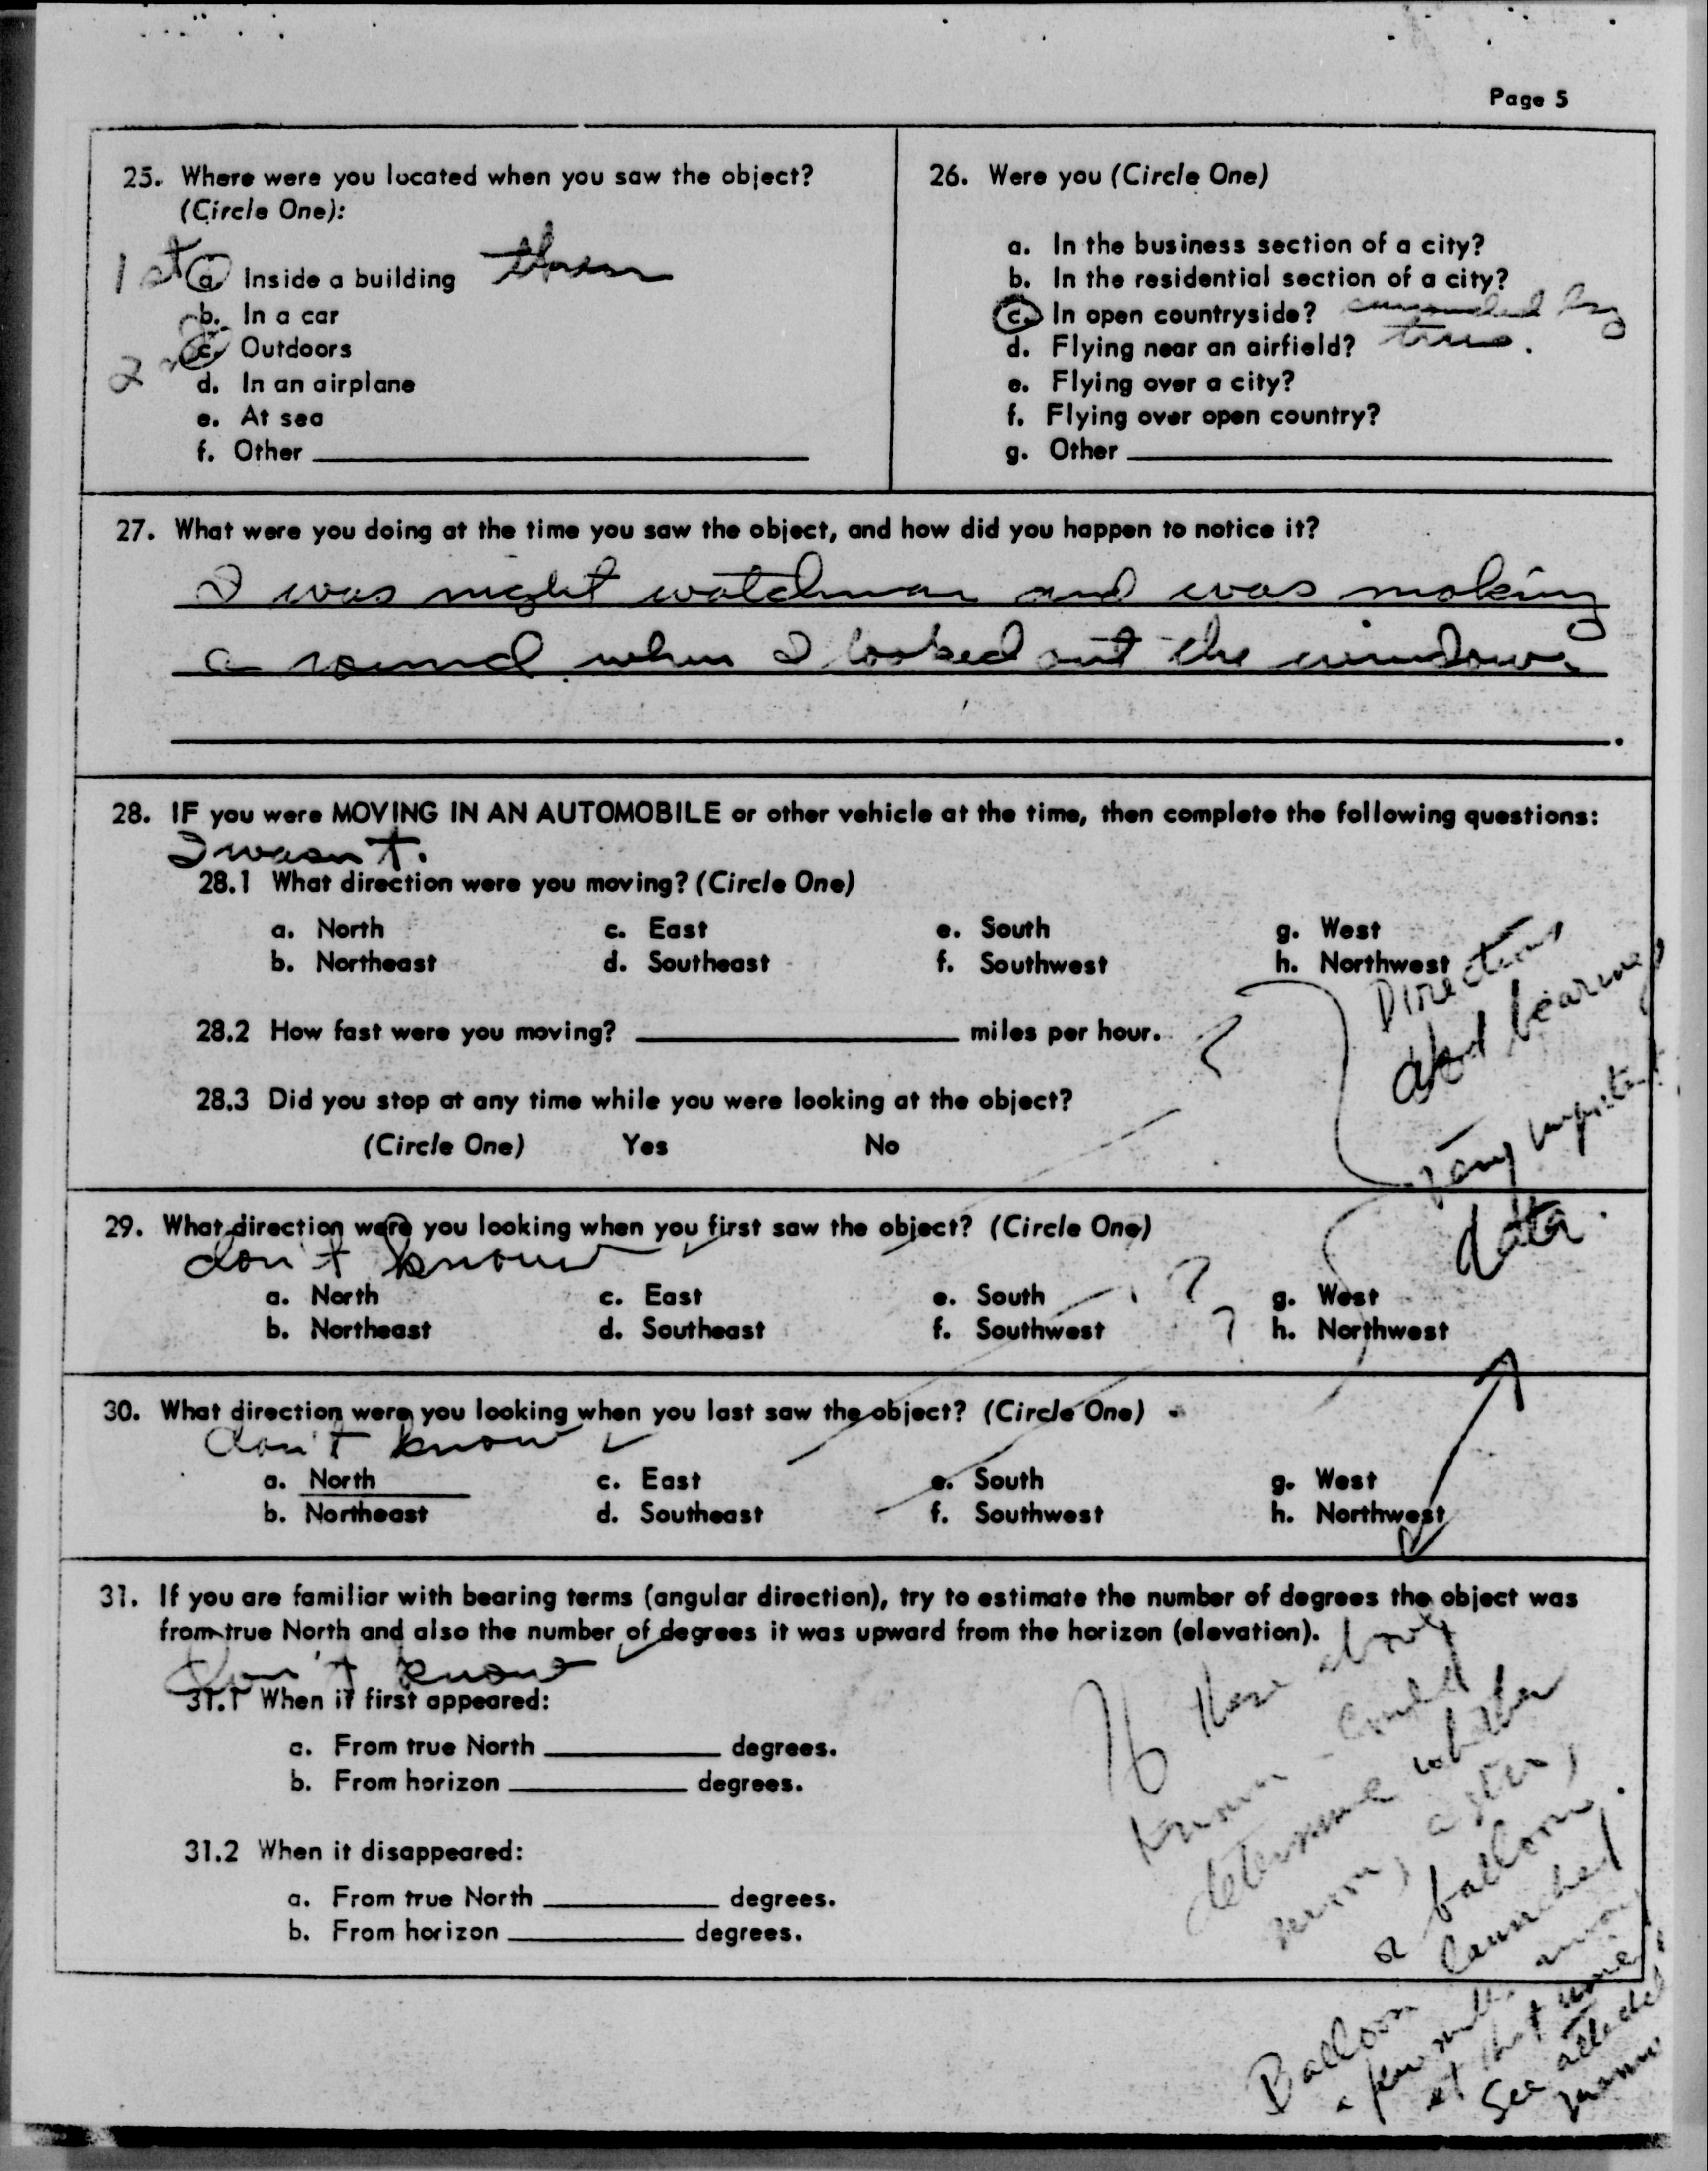 Page 5
25. Where were you located when you saw the object?
(Circle One):
1st a. Inside a building then
b. In a car
2nd c. Outdoors
d. In an airplane
e. At sea
f. Other
26. Were you (Circle One)
a. In the business section of a city?
b. In the residential section of a city?
c. In open countryside? surrounded by
d. Flying near an airfield? trees.
e. Flying over a city?
f. Flying over open country?
g. Other
27. What were you doing at the time you saw the object, and how did you happen to notice it?
I was night watchman and was making
a round when I looked out the window.
28. IF you were MOVING IN AN AUTOMOBILE or other vehicle at the time, then complete the following questions:
I wasn't.
28.1 What direction were you moving? (Circle One)
a. North c. East e. South g. West
b. Northeast d. Southeast f. Southwest h. Northwest
28.2 How fast were you moving? miles per hour.
28.3 Did you stop at any time while you were looking at the object?
(Circle One) Yes No
Directions
and bearings
very important
data.
29. What direction were you looking when you first saw the object? (Circle One)
don't know
a. North c. East e. South ? g. West
b. Northeast d. Southeast f. Southwest ? h. Northwest
30. What direction were you looking when you last saw the object? (Circle One)
don't know
a. North c. East e. South g. West
b. Northeast d. Southeast f. Southwest h. Northwest
31. If you are familiar with bearing terms (angular direction), try to estimate the number of degrees the object was
from true North and also the number of degrees it was upward from the horizon (elevation).
don't know
31.1 When it first appeared:
a. From true North degrees.
b. From horizon degrees.
31.2 When it disappeared:
a. From true North degrees.
b. From horizon degrees.
If these
known - could
determine whether
moon, a star,
or balloon.
Balloon launched
a few miles away
at that time.
See attached
memo